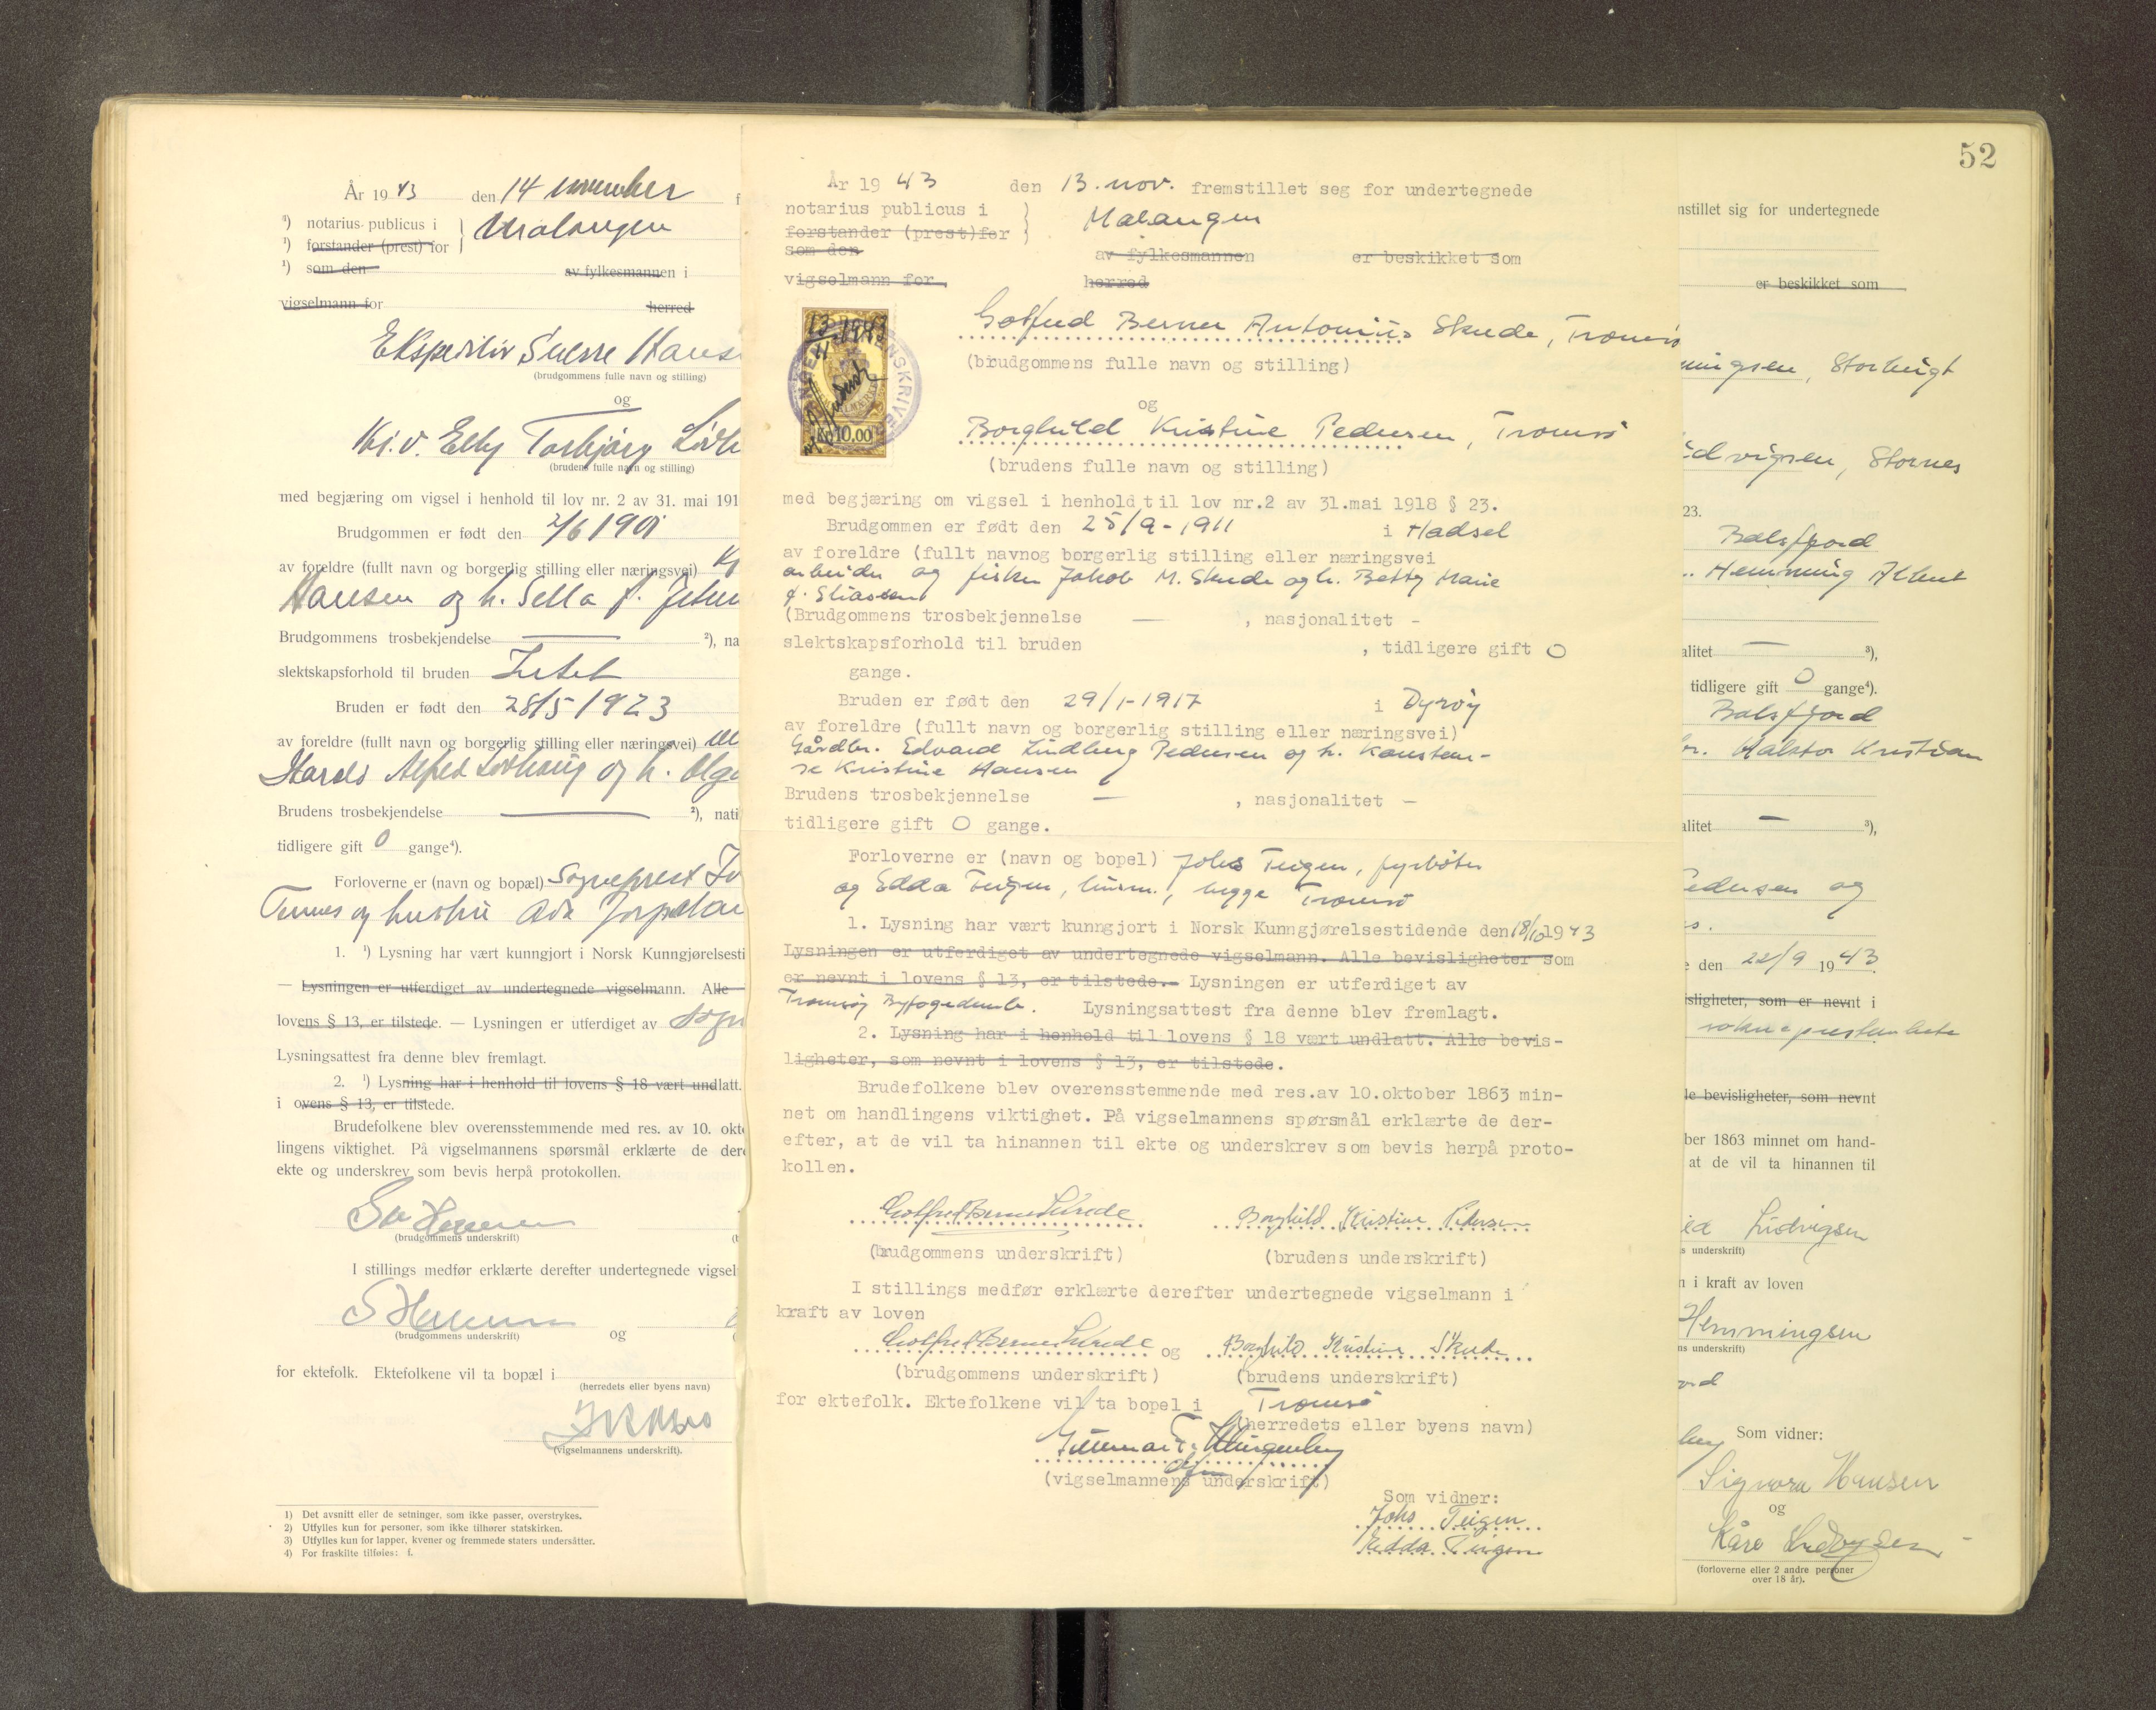 År 1943 den 14 november
¹) notarius publicus i Malangen
¹) forstander (prest) for
¹) som den av fylkesmannen i
vigselmann for herred
Ekspeditør Sverre Hans
(brudgommens fulle navn og stilling)
og
Torbjørg
(brudens fulle navn og stilling)
med begjæring om vigsel i henhold til lov nr. 2 av 31. mai 191
Brudgommen er født den 2/6 1901
av foreldre (fullt navn og borgerlig stilling eller næringsvei)
Hansen og h. Sella f.
Brudgommens trosbekjendelse — ²), na
slektskapsforhold til bruden Intet
Bruden er født den 28/5 1923
av foreldre (fullt navn og borgerlig stilling eller næringsvei)
Alfred og h. Olga
Brudens trosbekjendelse — ²), nati
tidligere gift 0 gange⁴).
Forloverne er (navn og bopæl) Sogneprest
og hustru
1. ¹) Lysning har vært kunngjort i Norsk Kunngjørelsesti
— Lysningen er utferdiget av undertegnede vigselmann. Alle
lovens § 13, er tilstede. — Lysningen er utferdiget av
Lysningsattest fra denne blev fremlagt.
2. ¹) Lysning har i henhold til lovens § 18 vært undlatt.
i ovens § 13, er tilstede.
Brudefolkene blev overensstemmende med res. av 10. okt
lingens viktighet. På vigselmannens spørsmål erklærte de der
ekte og underskrev som bevis herpå protokollen.
(brudgommens underskrift)
I stillings medfør erklærte derefter undertegnede vigsel
(brudgommens underskrift) og
for ektefolk. Ektefolkene vil ta bopæl i
(herredets eller byens navn)
(vigselmannens underskrift).
1) Det avsnitt eller de setninger, som ikke passer, overstrykes.
2) Utfylles kun for personer, som ikke tilhører statskirken.
3) Utfylles kun for lapper, kvener og fremmede staters undersåtter.
4) For fraskilte tilføies: f.
År 1943 den 13. nov. fremstillet seg for undertegnede
notarius publicus i Malangen
forstander (prest)for
som den av fylkesmannen er beskikket som
vigselmann for herred
Gotfred Berner Antonius Skrede, Tromsø
(brudgommens fulle navn og stilling)
Kr 10,00
og
Borghild Kristine Pedersen, Tromsø
(brudens fulle navn og stilling)
med begjæring om vigsel i henhold til lov nr.2 av 31.mai 1918 § 23.
Brudgommen er født den 25/9-1911 i Hadsel
av foreldre (fullt navnog borgerlig stilling eller næringsvei
arbeider og fisker Jakob M. Skrede og h. Betty Marie
f. Eliassen
(Brudgommens trosbekjennelse — , nasjonalitet -
slektskapsforhold til bruden , tidligere gift 0
gange.
Bruden er født den 29/1-1917 i Dyrøy
av foreldre (fullt navn og borgerlig stilling eller næringsvei)
Gårdbr. Edvard Lindberg Pedersen og h. Konstan-
se Kristine Hansen
Brudens trosbekjennelse — , nasjonalitet —
tidligere gift 0 gange.
Forloverne er (navn og bopel) Johs Teigen, fyrbøter
og Edda Teigen, husm., begge Tromsø
1. Lysning har vært kunngjort i Norsk Kunngjørelsestidende den 18/10 1943
Lysningen er utferdiget av undertegnede vigselmann. Alle bevisligheter som
er nevnt i lovens § 13, er tilstede.- Lysningen er utferdiget av
Tromsøy Byfogdemb. Lysningsattest fra denne blev fremlagt.
2. Lysning har i henhold til lovens § 18 vært undlatt. Alle bevis-
ligheter, som nevnt i lovens § 13, er tilstede.
Brudefolkene blev overensstemmende med res.av 10.oktober 1863 min-
net om handlingens viktighet. På vigselmannens spørsmål erklærte de der-
efter, at de vil ta hinannen til ekte og underskrev som bevis herpå proto-
kollen.
Gotfred Berner Skrede Borghild Kristine Pedersen
(brudgommens underskrift) (brudens underskrift)
I stillings medfør erklærte derefter undertegnede vigselmann i
kraft av loven
Gotfred Berner Skrede og Borghild Kristine Skrede
(brudgommens underskrift) (brudens underskrift)
for ektefolk. Ektefolkene vil ta bopel i Tromsø
(herredets eller byens navn)
(vigselmannens underskrift)
Som vidner:
Johs Teigen
Edda Teigen
52
nstillet sig for undertegnede
er beskikket som
mingsen, Storbugt
edvigsen, Stornes
23.
Balsfjord
Hemming Albert
alitet — ³),
tidligere gift 0 gange⁴).
Balsfjord
Kristian
alitet — ³),
Pedersen og
s.
e den 22/9 1943.
isligheter, som er nevnt i
le bevisligheter, som nevnt
ber 1863 minnet om hand-
at de vil ta hinannen til
Ludvigsen
s underskrift)
n i kraft av loven
Hemmingsen
ns underskrift)
ord
Som vidner:
Signora Hansen
og
Kåre
(forloverne eller 2 andre personer
over 18 år).